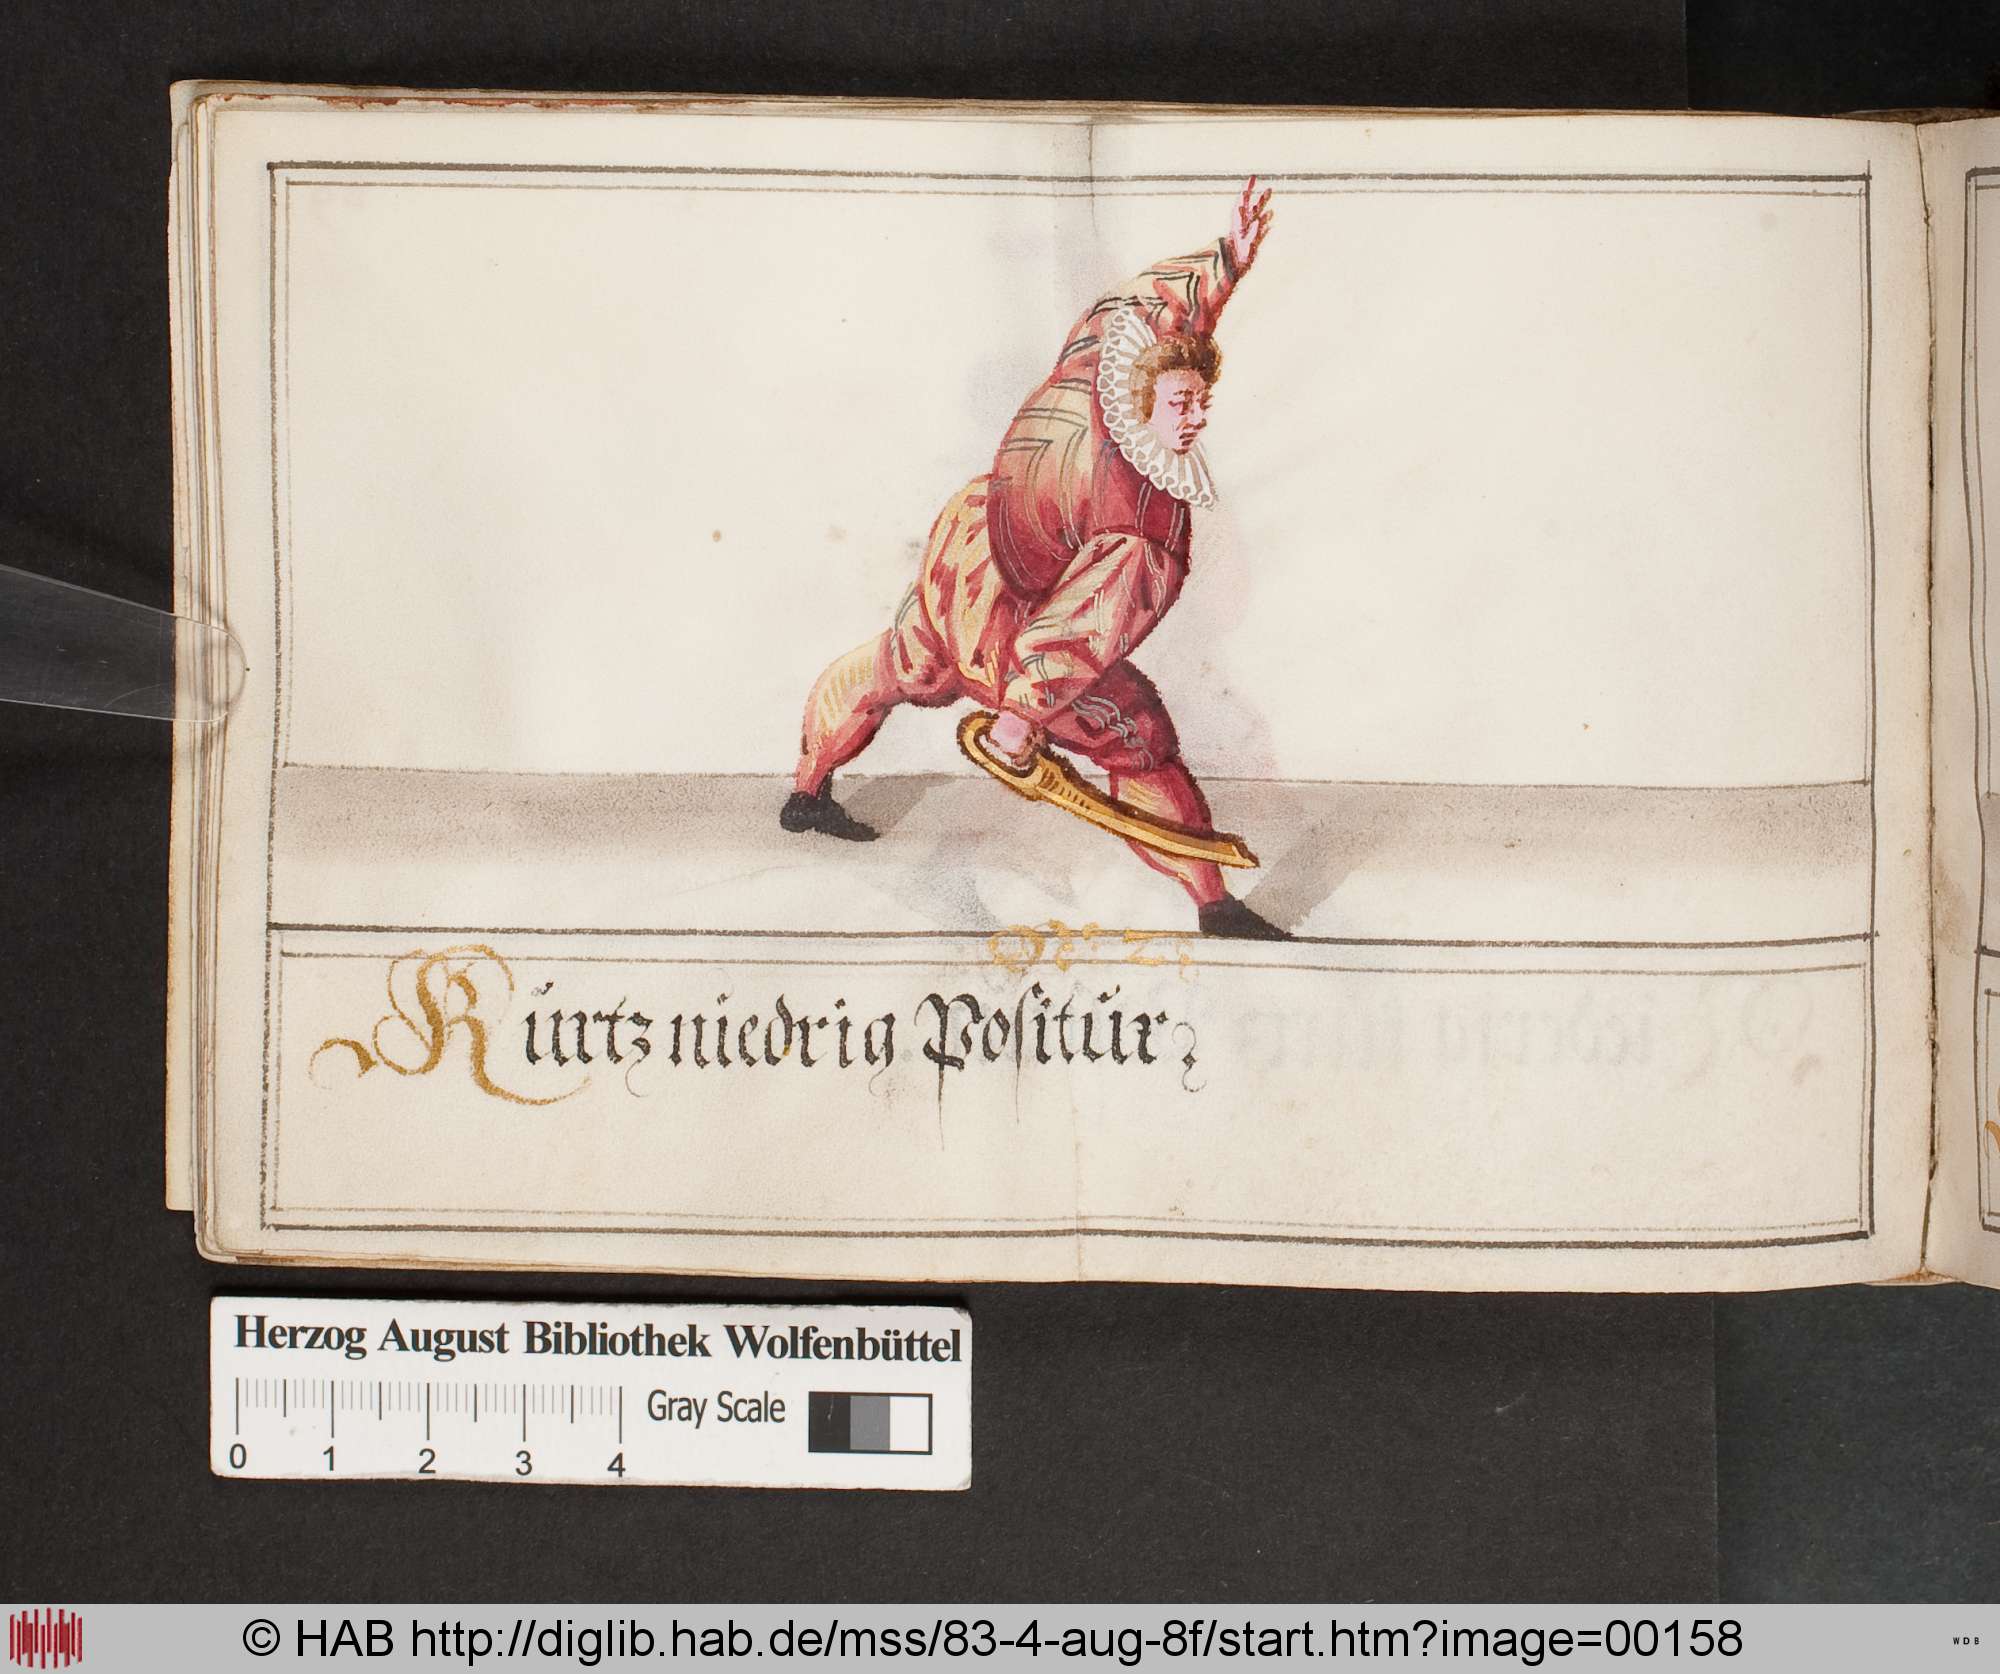 Kürtz niedrig Positür
Herzog August Bibliothek Wolfenbüttel
Gray Scale
0 1 2 3 4
© HAB http://diglib.hab.de/mss/83-4-aug-8f/start.htm?image=00158
WDB